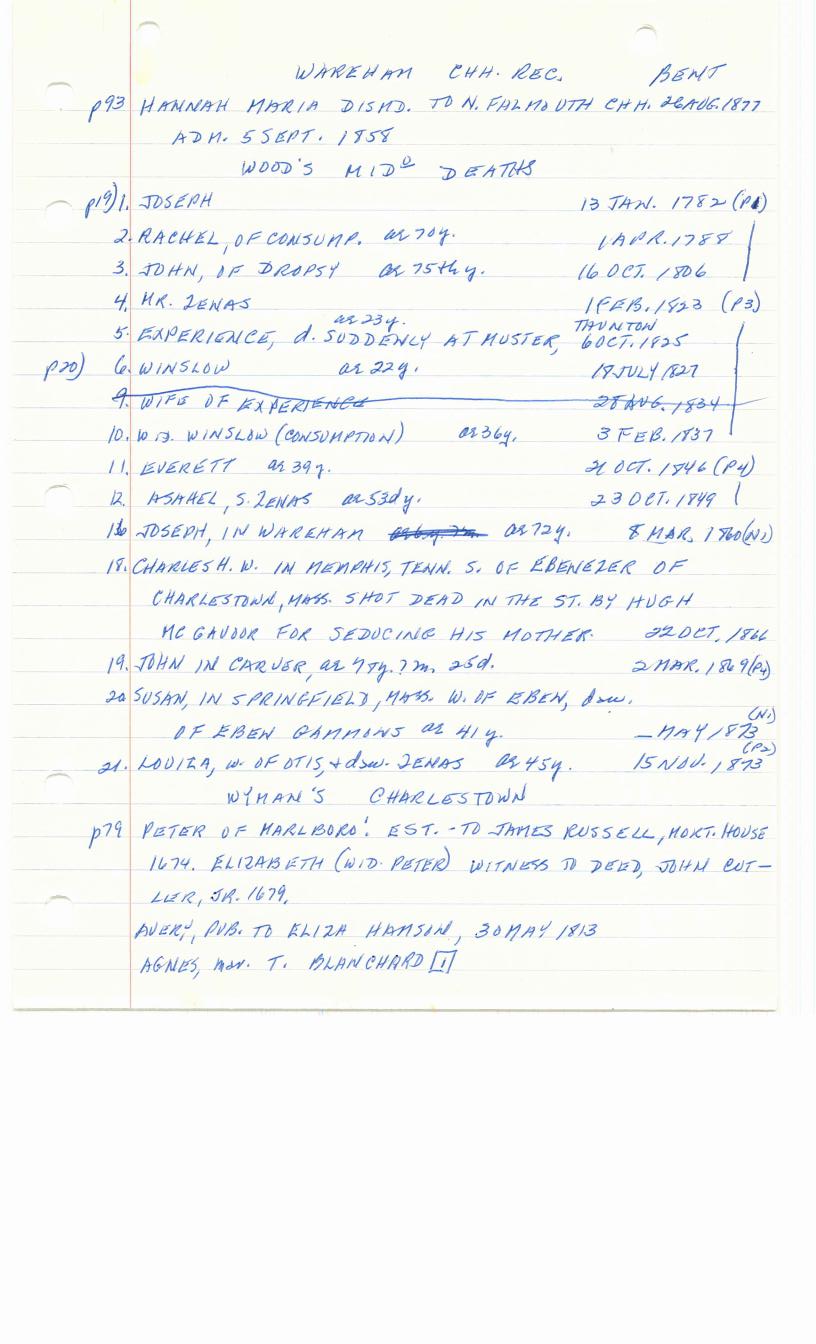 WAREHAM CHH. REC. BENT
p93 HANNAH MARIA DISMD. TO N. FALMOUTH CHH. 26 AUG. 1877
ADM. 5 SEPT. 1858
WOOD'S MIDº DEATHS
p19) 1. JOSEPH 13 JAN. 1782 (P1)
2. RACHEL, OF CONSUMP. ae 70y. 1 APR. 1788
3. JOHN, OF DROPSY ae 75th y. 16 OCT. 1806
4. MR. ZENAS 1 FEB. 1823 (P3)
ae 23y. TAUNTON
5. EXPERIENCE, d. SUDDENLY AT MUSTER, 6 OCT. 1825
p20) 6. WINSLOW ae 22y. 18 JULY 1827
9. WIFE OF EXPERIENCE 28 AUG. 1834
10. WID. WINSLOW (CONSUMPTION) ae 36y. 3 FEB. 1837
11. EVERETT ae 39y. 21 OCT. 1846 (P4)
12. ASAHEL, S. ZENAS ae 53d y. 23 OCT. 1849
16 JOSEPH, IN WAREHAM ae 72y. 8 MAR. 1860 (N1)
18. CHARLES H. W. IN MEMPHIS, TENN. S. OF EBENEZER OF
CHARLESTOWN, MASS. SHOT DEAD IN THE ST. BY HUGH
MC GAVOOR FOR SEDUCING HIS MOTHER. 22 OCT. 1866
19. JOHN IN CARVER, ae 47y. 7m. 25d. 2 MAR. 1869 (P4)
20 SUSAN, IN SPRINGFIELD, MASS. W. OF EBEN, dau.
(N1)
OF EBEN GAMMONS ae 41 y. — MAY 1873
(P2)
21. LOUIZA, w. OF OTIS, & dau. ZENAS ae 45y. 15 NOV. 1873
WYMAN'S CHARLESTOWN
p79 PETER OF MARLBORO'. EST. - TO JAMES RUSSELL, MORT. HOUSE
1674. ELIZABETH (WID. PETER) WITNESS TO DEED, JOHN CUT-
LER, JR. 1679.
AVERY, PUB. TO ELIZA HANSON, 30 MAY 1813
AGNES, mar. T. BLANCHARD [1]